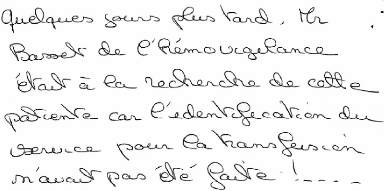 Quelques jours plus tard, Mr
Basset de l'Hémovigilance
était à la recherche de cette
patiente car l'identification du
service pour la transfusion
n'avait pas été faite !....